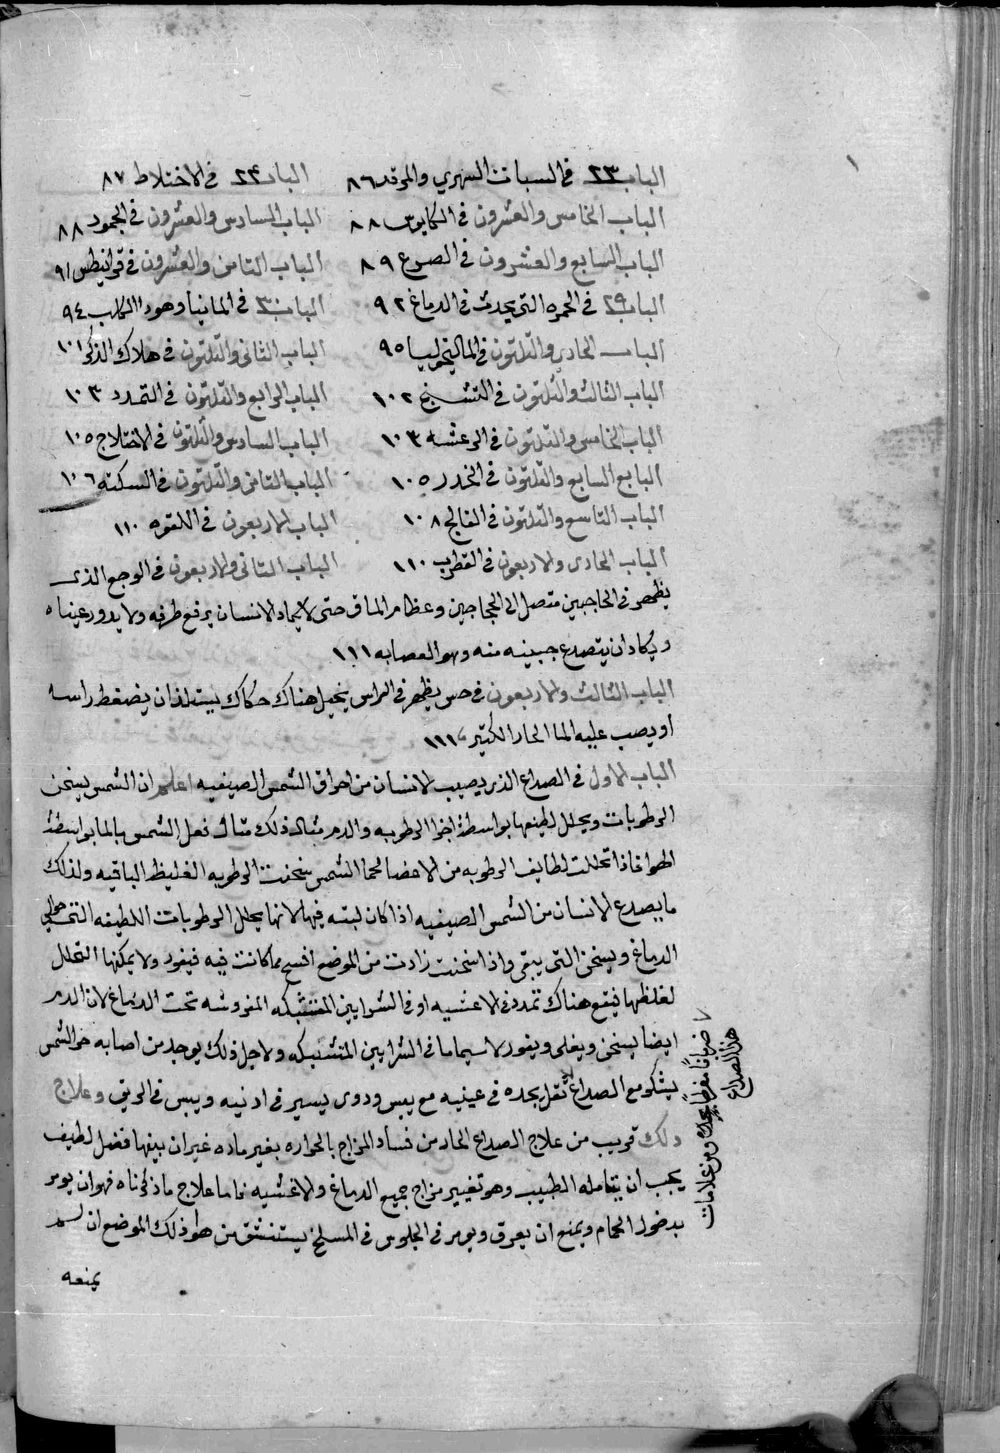 ١
الباب ٢٣ في السبات السهري والمرقد ٨٦ الباب ٢٤ في الاختلاط ٨٧
الباب الخامس والعشرون في الكابوس ٨٨ الباب السادس والعشرون في الجمود ٨٨
الباب السابع والعشرون في الصرع ٨٩ الباب الثامن والعشرون في قرانيطس ٩١
الباب ٢٩ في الحمره التي يحدث في الدماغ ٩٢ الباب ٣٠ في المانيا وهو داالكلب ٩٤
الباب الحادي والثلثون في الماليخوليا ٩٥ الباب الثاني والثلثون في هلاك الذكر ١٠١
الباب الثالث والثلثون في التشنج ١٠٢ الباب الرابع والثلثون في التمدد ١٠٣
الباب الخامس والثلثون في الرعشه ١٠٣ الباب السادس والثلثون في الاختلاج ١٠٥
البابع السابع والثلثون في الخدر ١٠٥ الباب الثامن والثلثون في السكته ١٠٦
الباب التاسع والثلثون في الفالج ١٠٨ الباب الاربعون في اللقوه ١١٠
الباب الحادي والاربعون في القطرب ١١٠ الباب الثاني والاربعون في الوجع الذي
يظهر في الحاجبين متصل الى الحجاجين وعظام الماق حتى لا يكاد الانسان يرفع طرفه ولا يدور عيناه
ويكاد ان يتصدع جبينه منه وهو العصابه ١١١
الباب الثالث والاربعون في حس يظهر في الراس يخيل هناك حكاك يستلذ ان يضغط راسه
او يصب عليه الما الحار الكثير ١١١
الباب الاول في الصداع الذي يصيب الانسان من احراق الشمس الصيفيه اعلم ان الشمس يسخن
الرطوبات ويحلل لطيفها بواسطة اجزا الرطوبه والدم مثال ذلك مثال فعل الشمس بالما بواسطة
الهوا فاذا تحللت لطايف الرطوبه من الاعضا لحما الشمس سخنت الرطوبه الغليظه الباقيه ولذلك
ما يصدع الانسان من الشمس الصيفيه اذا كان لبثه فيها لانها يحلل الرطوبات اللطيفه التي حوالي
الدماغ ويسخن التي يبقى واذا سخنت زادت من الموضع افسح مما كانت فيه فيفور ولا يمكنها التحلل
لغلظها فيقع هناك تمدد في الاغشيه او في الشرايين المتشبكه المفروشه تحت الدماغ لان الدم
ايضا يسخن ويغلى ويفور لا سيما ما في الشرايين المتشبكه ولاجل ذلك يوجد من اصابه حر الشمس
يشكو مع الصداع ثقل يجده في عينيه مع يبس ودوى يسير في اذنيه ويبس في الريق وعلاج
ذلك قريب من علاج الصداع الحار من فساد المزاج بالحراره بغير ماده غير ان بينهما فصل لطيف
يجب ان يتامله الطبيب وهو تغيير مزاج جميع الدماغ والاغشيه فاما علاج ما ذكرناه فهو ان يومر
بدخول الحمام ويمنع ان يعرق ويومر في الجلوس في المسلخ يستنشق من هوا ذلك الموضع ان لم
يمنعه
ضربانا مفرطا يجده ومن علامات
هذا الصداع